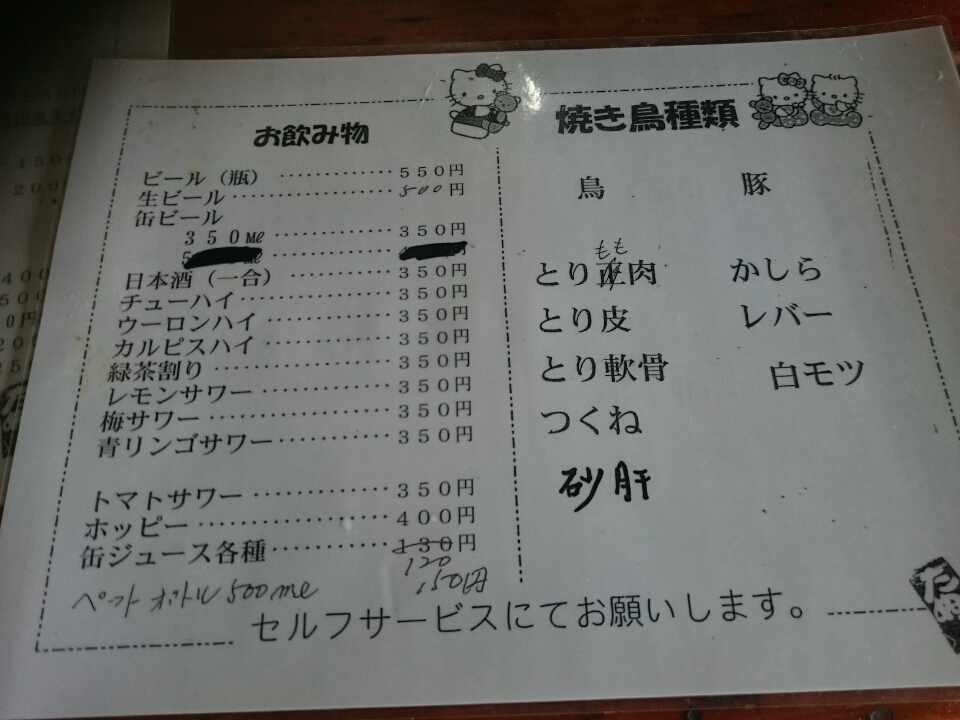 お飲み物
ビール（瓶）‥‥‥‥‥‥５５０円
生ビール‥‥‥‥‥‥‥500円
缶ビール
３５０㎖‥‥‥‥‥‥３５０円
日本酒（一合）‥‥‥‥‥３５０円
チューハイ‥‥‥‥‥‥‥３５０円
ウーロンハイ‥‥‥‥‥‥３５０円
カルピスハイ‥‥‥‥‥‥３５０円
緑茶割り‥‥‥‥‥‥‥‥３５０円
レモンサワー‥‥‥‥‥‥３５０円
梅サワー‥‥‥‥‥‥‥‥３５０円
青リンゴサワー‥‥‥‥‥３５０円
トマトサワー‥‥‥‥‥‥３５０円
ホッピー‥‥‥‥‥‥‥‥４００円
缶ジュース各種‥‥‥‥‥１３０円
120
ペットボトル 500ml 150円
焼き鳥種類
鳥 豚
もも
とり正肉 かしら
とり皮 レバー
とり軟骨 白モツ
つくね
砂肝
セルフサービスにてお願いします。